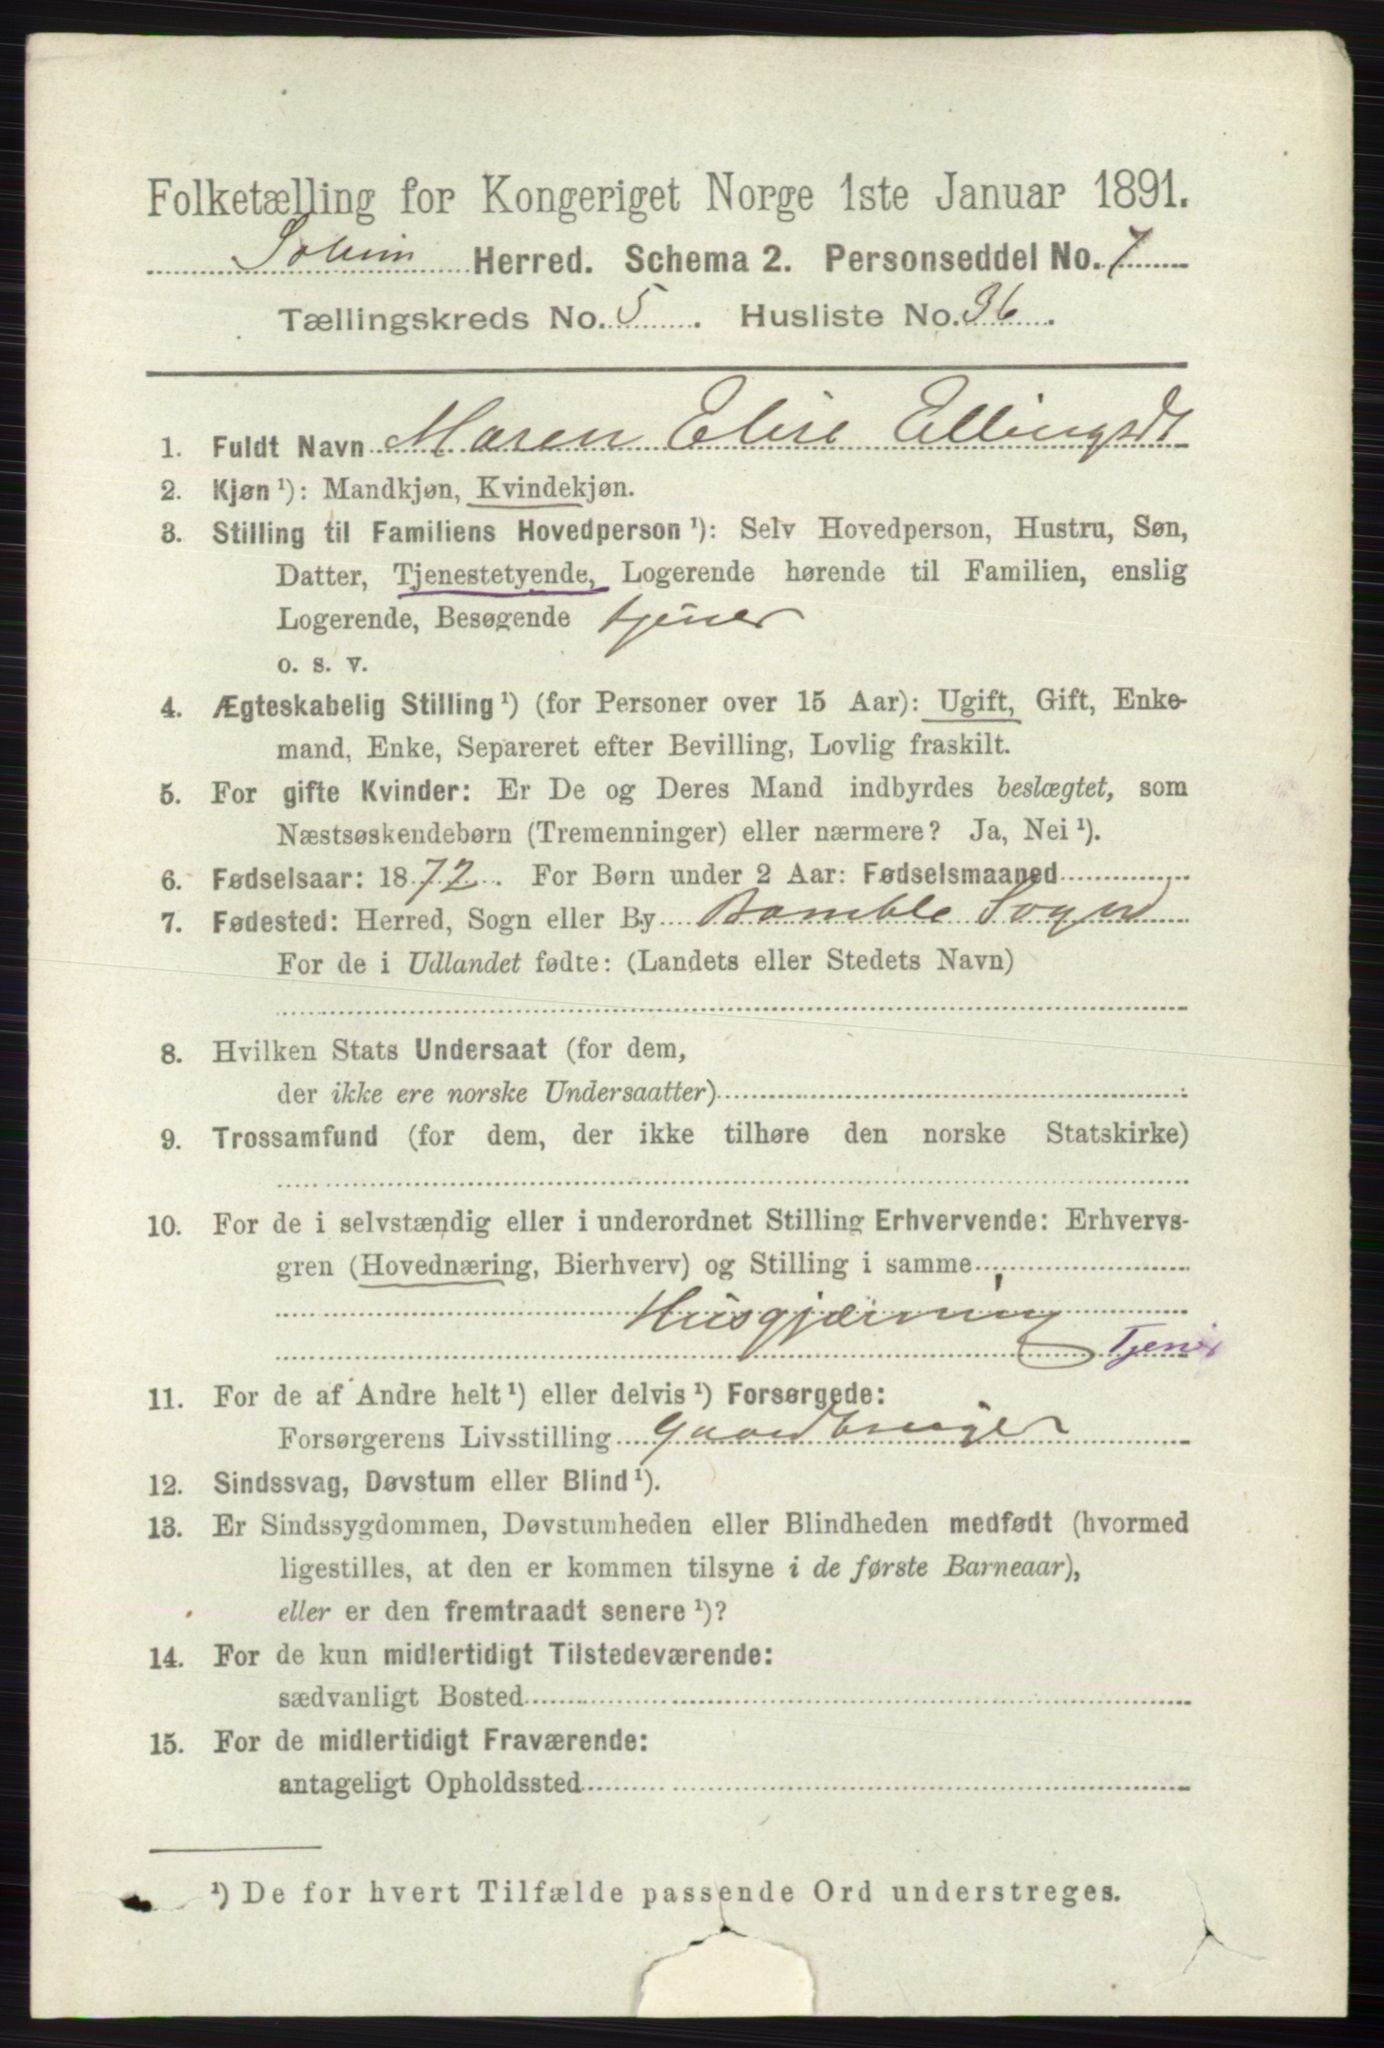 Folketælling for Kongeriget Norge 1ste Januar 1891.
Solum Herred. Schema 2. Personseddel No. 7
Tællingskreds No. 5. Husliste No. 36.
1. Fuldt Navn Maren Elise Ellingsdt
2. Kjøn ¹): Mandkjøn, Kvindekjøn.
3. Stilling til Familiens Hovedperson ¹): Selv Hovedperson, Hustru, Søn,
Datter, Tjenestetyende, Logerende hørende til Familien, enslig
Logerende, Besøgende tjener
o. s. v.
4. Ægteskabelig Stilling ¹) (for Personer over 15 Aar): Ugift, Gift, Enke-
mand, Enke, Separeret efter Bevilling, Lovlig fraskilt.
5. For gifte Kvinder: Er De og Deres Mand indbyrdes beslægtet, som
Næstsøskendebørn (Tremenninger) eller nærmere? Ja, Nei ¹).
6. Fødselsaar: 1872. For Børn under 2 Aar: Fødselsmaaned
7. Fødested: Herred, Sogn eller By Bamble Sogn
For de i Udlandet fødte: (Landets eller Stedets Navn)
8. Hvilken Stats Undersaat (for dem,
der ikke ere norske Undersaatter)
9. Trossamfund (for dem, der ikke tilhøre den norske Statskirke)
10. For de i selvstændig eller i underordnet Stilling Erhvervende: Erhvervs-
gren (Hovednæring, Bierhverv) og Stilling i samme
Husgjærning
Tjener
11. For de af Andre helt ¹) eller delvis ¹) Forsørgede:
Forsørgerens Livsstilling gaardbruger
12. Sindssvag, Døvstum eller Blind ¹).
13. Er Sindssygdommen, Døvstumheden eller Blindheden medfødt (hvormed
ligestilles, at den er kommen tilsyne i de første Barneaar),
eller er den fremtraadt senere ¹)?
14. For de kun midlertidigt Tilstedeværende:
sædvanligt Bosted
15. For de midlertidigt Fraværende:
antageligt Opholdssted
¹) De for hvert Tilfælde passende Ord understreges.